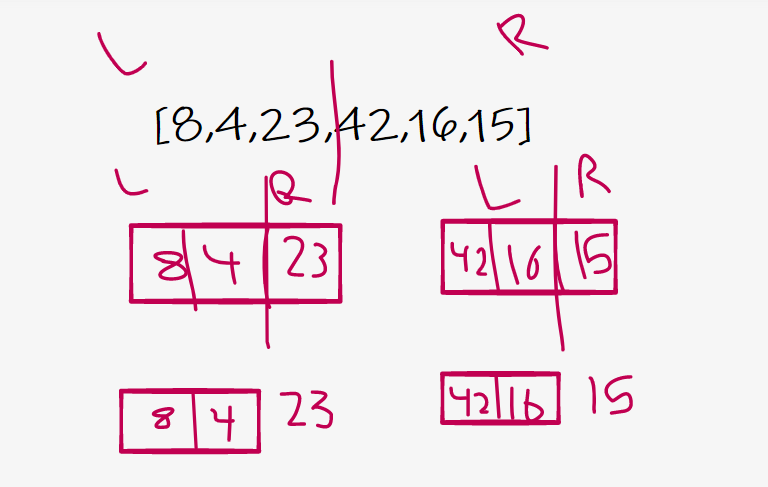 L R
[8,4,23,42,16,15]
L R L R
8 4 23 42 16 15
8 4 23 42 16 15